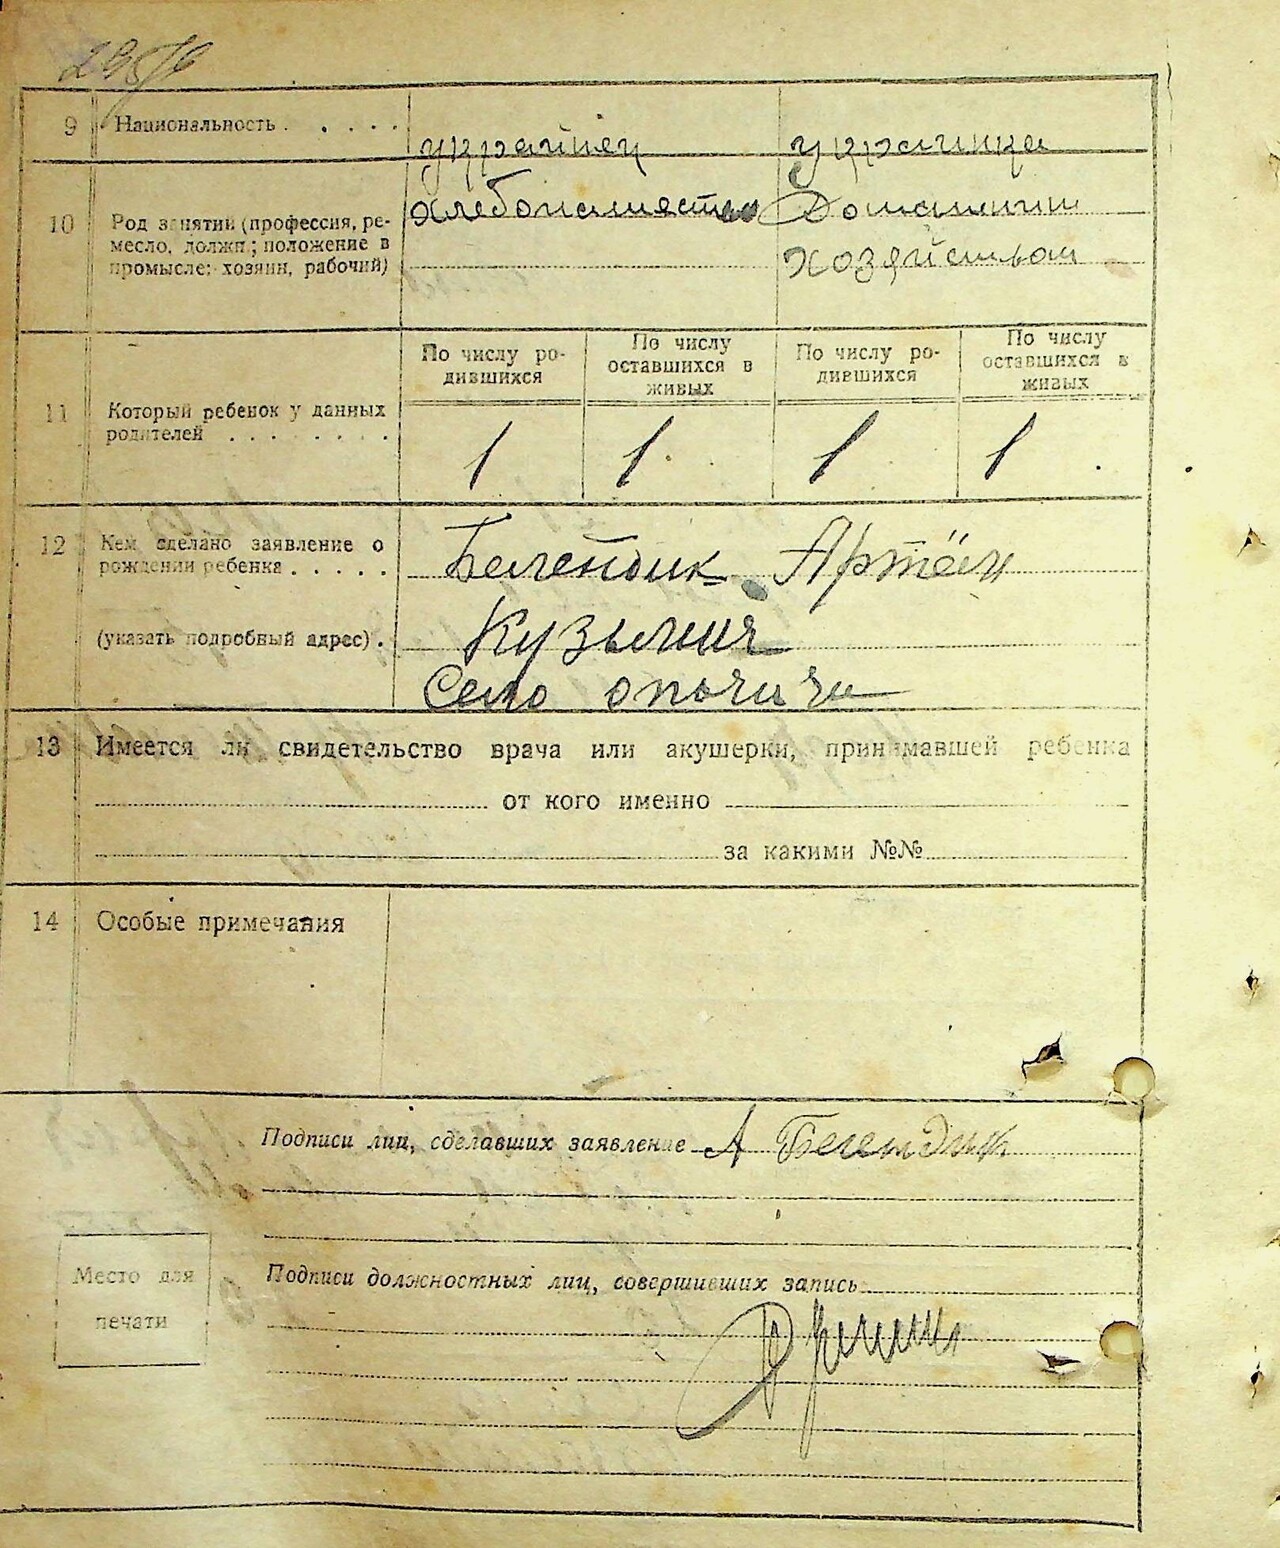 9 Национальность . . . . . украйнец украинка
10 Род занятий (профессия, ре-
месло, должн.; положение в
промысле: хозяин, рабочий)
хлебопашество Домашним
хозяйством
11 Который ребенок у данных
родителей . . . . . . . .
По числу ро-
дившихся
По числу
оставшихся в
живых
По числу ро-
дившихся
По числу
оставшихся в
живых
1 1 1 1
12 Кем сделано заявление о
рождении ребенка . . . . .
(указать подробный адрес) .
Артём
Кузьмич
Село опачичи
13 Имеется ли свидетельство врача или акушерки, принимавшей ребенка
от кого именно
за какими №№
14 Особые примечания
Подписи лиц, сделавших заявление А
Место для
печати
Подписи должностных лиц, совершивших запись